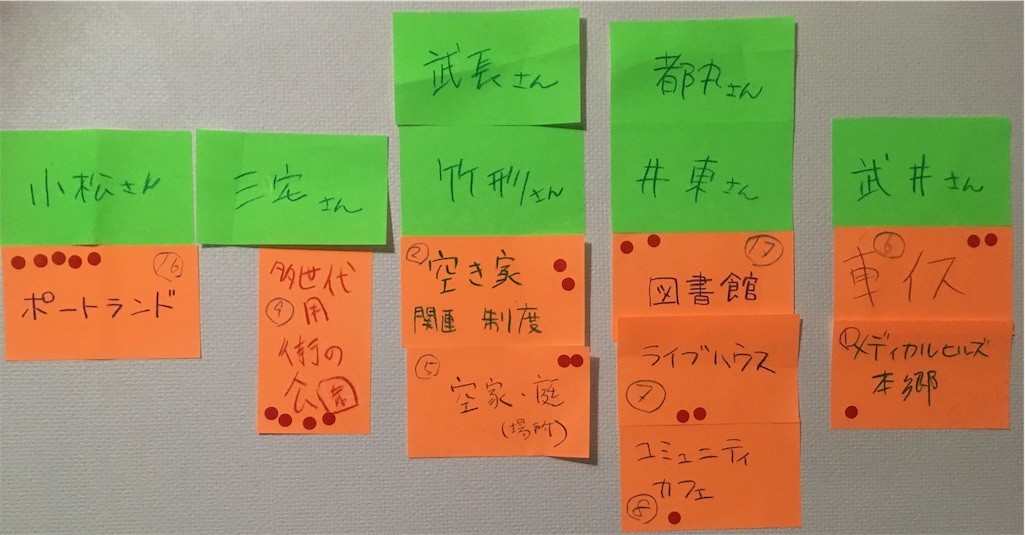 武長さん
都丸さん
小松さん
三宅さん
竹形さん
井東さん
武井さん
⑯
ポートランド
多世代
④用
街の
公園
②空き家
関連 制度
⑤
空家・庭
(場所)
⑰
図書館
ライブハウス
⑦
コミュニティ
カフェ
⑧
⑥
車イス
①メディカルヒルズ
本郷